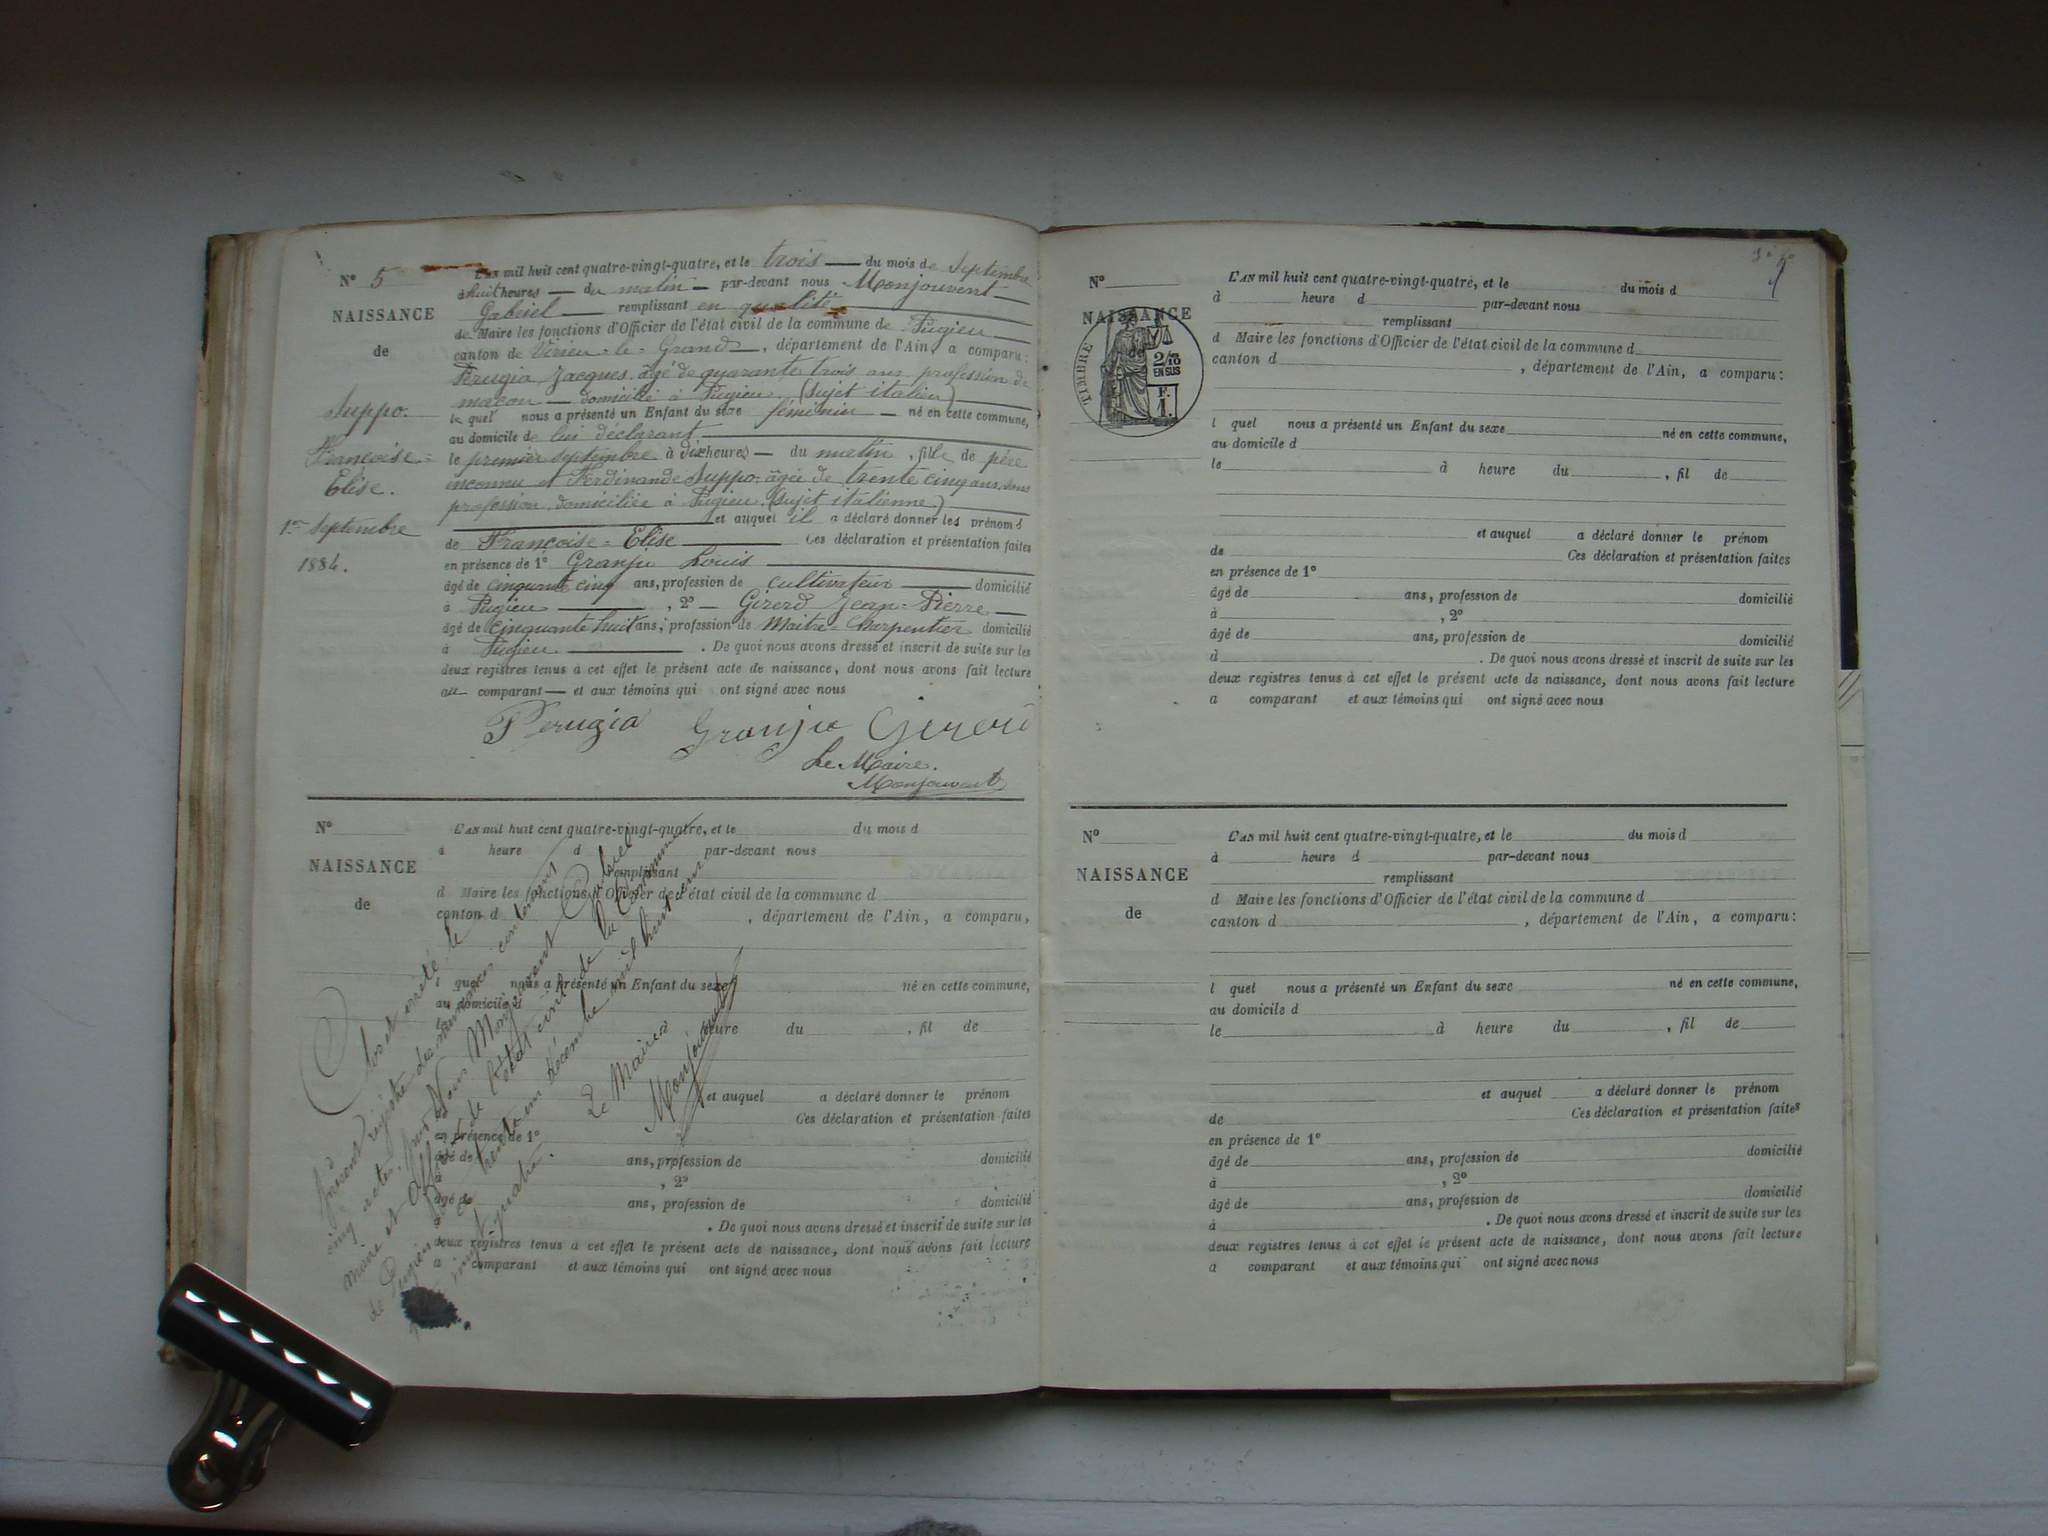 N° 5
NAISSANCE
de
Suppo.
Françoise=
Elise.
1er Septembre
1884.
L'AN mil huit cent quatre-vingt-quatre, et le trois du mois de Septembre
à huit heures du matin par-devant nous Monjouvent
Gabriel remplissant en qualité
de Maire les fonctions d'Officier de l'état civil de la commune de Pugieu
canton de Virieu-le-Grand, département de l'Ain, a comparu:
Perugia Jacques âgé de quarante trois ans profession de
maçon domicilié à Pugieu (sujet italien)
le quel nous a présenté un Enfant du sexe féminin né en cette commune,
au domicile de lui déclarant
le premier Septembre à dix heures du matin, fille de père
inconnu et Ferdinande Suppo âgée de trente cinq ans, sans
profession, domiciliée à Pugieu (Sujet italienne)
et auquel il a déclaré donner les prénoms
de Françoise=Elise Ces déclaration et présentation faites
en présence de 1° Granju Louis
âgé de cinquante cinq ans, profession de cultivateur domicilié
à Pugieu, 2° Gérerd Jean=Pierre
âgé de cinquante huit ans, profession de Maître=Charpentier domicilié
à Pugieu. De quoi nous avons dressé et inscrit de suite sur les
deux registres tenus à cet effet le présent acte de naissance, dont nous avons fait lecture
au comparant et aux témoins qui ont signé avec nous
Perugia Granju Gérerd
Le Maire.
Monjouvent
N°
NAISSANCE
de
L'AN mil huit cent quatre-vingt-quatre, et le du mois d
à heure d par-devant nous
remplissant
d Maire les fonctions d'Officier de l'état civil de la commune d
canton d , département de l'Ain, a comparu,
l quel nous a présenté un Enfant du sexe né en cette commune,
au domicile d
le à heure du , fil de
et auquel a déclaré donner le prénom
Ces déclaration et présentation faites
en présence de 1°
âgé de ans, profession de domicilié
à , 2°
âgé de ans, profession de domicilié
à . De quoi nous avons dressé et inscrit de suite sur les
deux registres tenus à cet effet le présent acte de naissance, dont nous avons fait lecture
a comparant et aux témoins qui ont signé avec nous
Clos et arrêté le
présent registre des naissances contenant
cinq actes, par Nous Monjouvent Gabriel
Maire et Officier de l'état civil de la Commune
de Pugieu le trente un décembre mil huit cent
quatre vingt quatre.
Le Maire
Monjouvent
N°
NAISSANCE
de
TIMBRE
2/10
EN SUS
F.
1.
L'AN mil huit cent quatre-vingt-quatre, et le du mois d
à heure d par-devant nous
remplissant
d Maire les fonctions d'Officier de l'état civil de la commune d
canton d , département de l'Ain, a comparu:
l quel nous a présenté un Enfant du sexe né en cette commune,
au domicile d
le à heure du , fil de
et auquel a déclaré donner le prénom
de Ces déclaration et présentation faites
en présence de 1°
âgé de ans, profession de domicilié
à , 2°
âgé de ans, profession de domicilié
à . De quoi nous avons dressé et inscrit de suite sur les
deux registres tenus à cet effet le présent acte de naissance, dont nous avons fait lecture
a comparant et aux témoins qui ont signé avec nous
N°
NAISSANCE
de
L'AN mil huit cent quatre-vingt-quatre, et le du mois d
à heure d par-devant nous
remplissant
d Maire les fonctions d'Officier de l'état civil de la commune d
canton d , département de l'Ain, a comparu:
l quel nous a présenté un Enfant du sexe né en cette commune,
au domicile d
le à heure du , fil de
et auquel a déclaré donner le prénom
de Ces déclaration et présentation faites
en présence de 1°
âgé de ans, profession de domicilié
à , 2°
âgé de ans, profession de domicilié
à . De quoi nous avons dressé et inscrit de suite sur les
deux registres tenus à cet effet le présent acte de naissance, dont nous avons fait lecture
a comparant et aux témoins qui ont signé avec nous